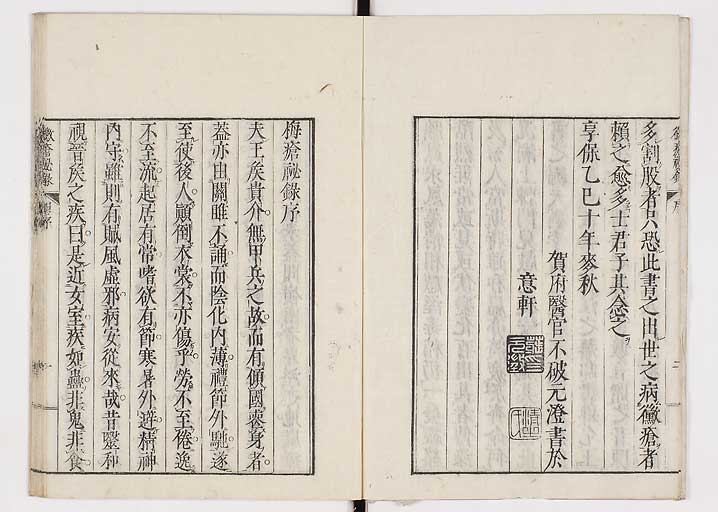 多割股者只恐此書之出世之病黴瘡者
賴之愈多士君子其念之
享保乙巳十年麥秋
賀府醫官不破元澄書於
意軒
梅瘡祕錄序
夫王矦貴介無甲兵之故而有傾國喪身者
蓋亦由關雎不誦而陰化內薄禮節外馳遂
至使後人顚倒衣裳不亦傷乎勞不至倦逸
不至流起居有常嗜欲有節寒暑外避精神
內守雖則有賊風虛邪病安從來哉昔毉和
視晉矦之疾曰是近女室疾如蠱非鬼非食